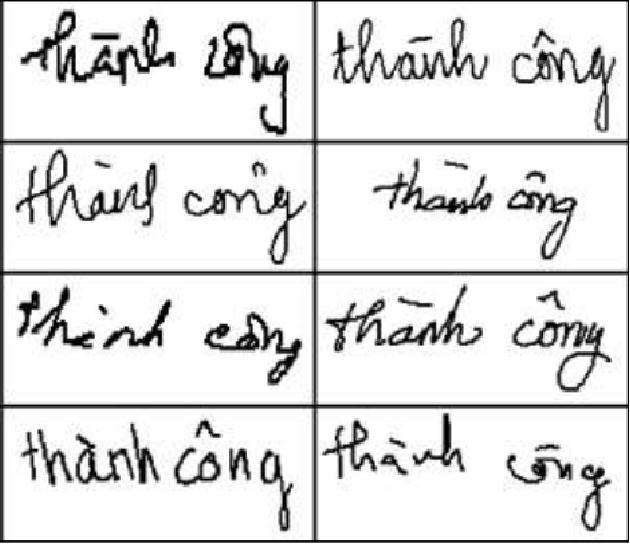 thành công thành công
thành công thành công
thành công thành công
thành công thành công